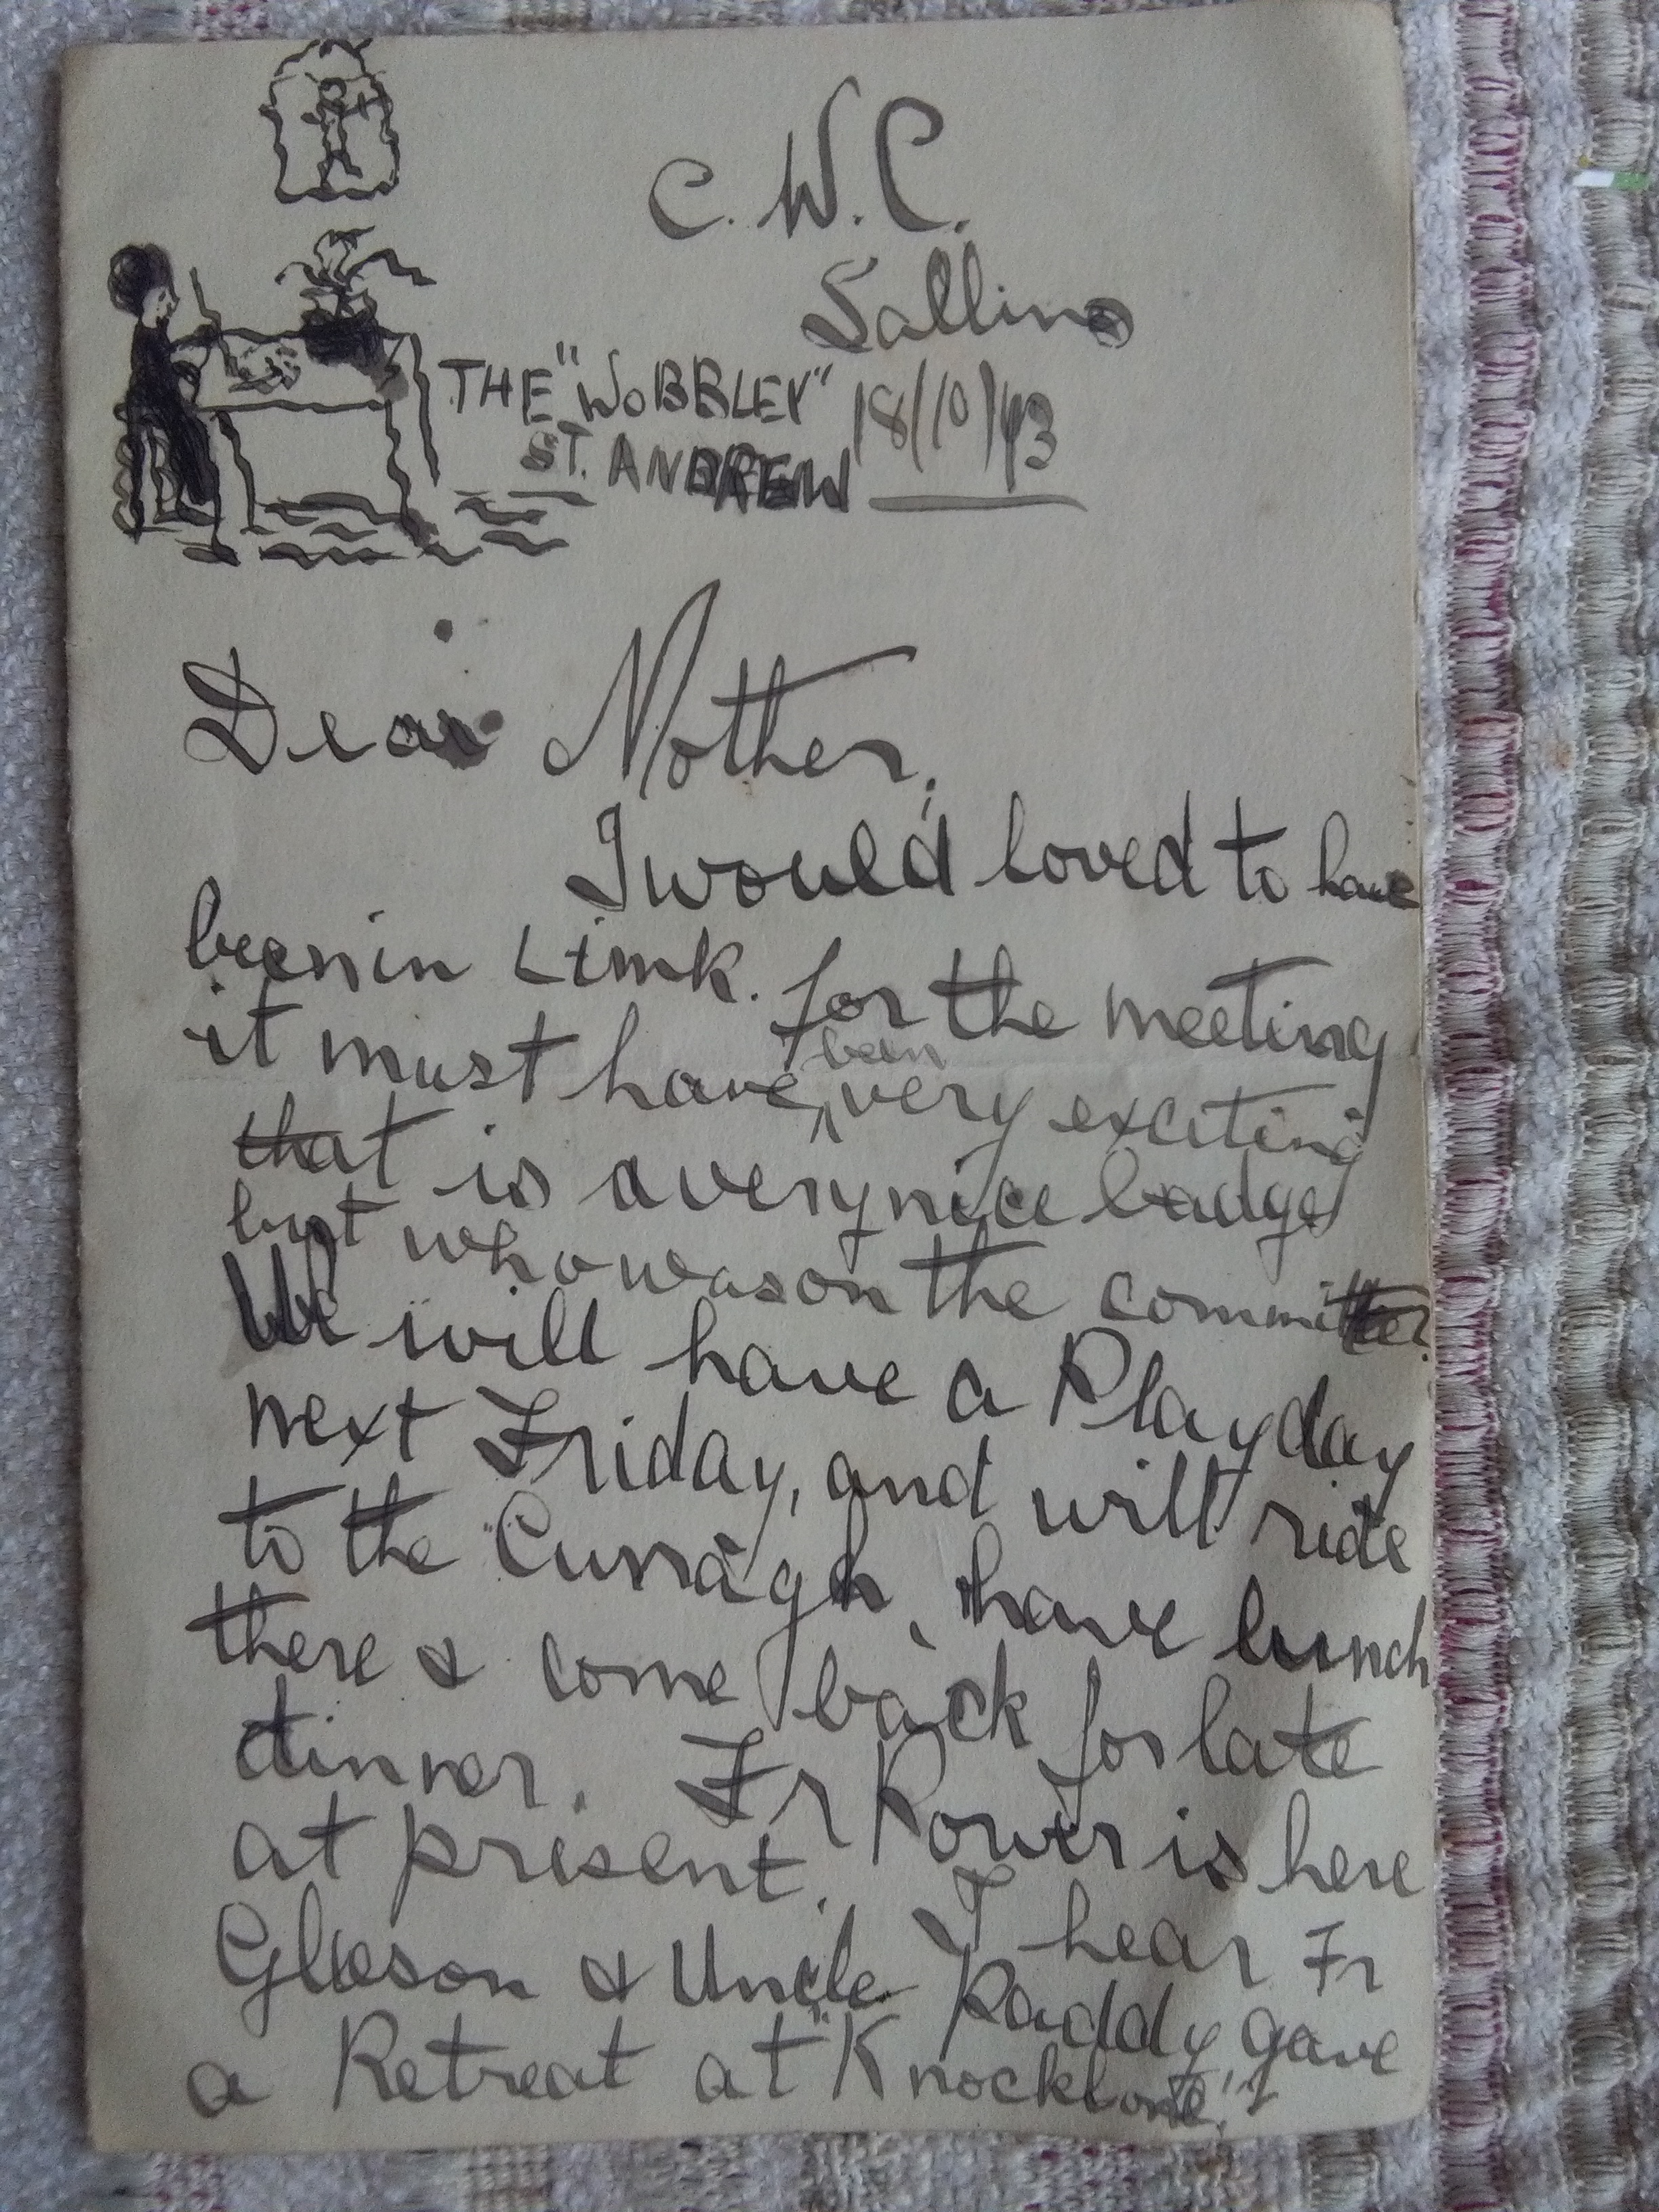 C. W. C.
Sallins
THE "WOBBLEY" 18/10/43
ST. ANDREW
Dear Mother,
I would loved to have
been in Limk. for the meeting
it must have been very exciting
that is a very nice badge
but who was on the committee?
We will have a Play day
next Friday, and will ride
to the "Curragh, have lunch
there & come back for late
dinner. Fr Power is here
at present. I hear Fr
Gleeson & Uncle Paddy gave
a Retreat at "Knocklone"